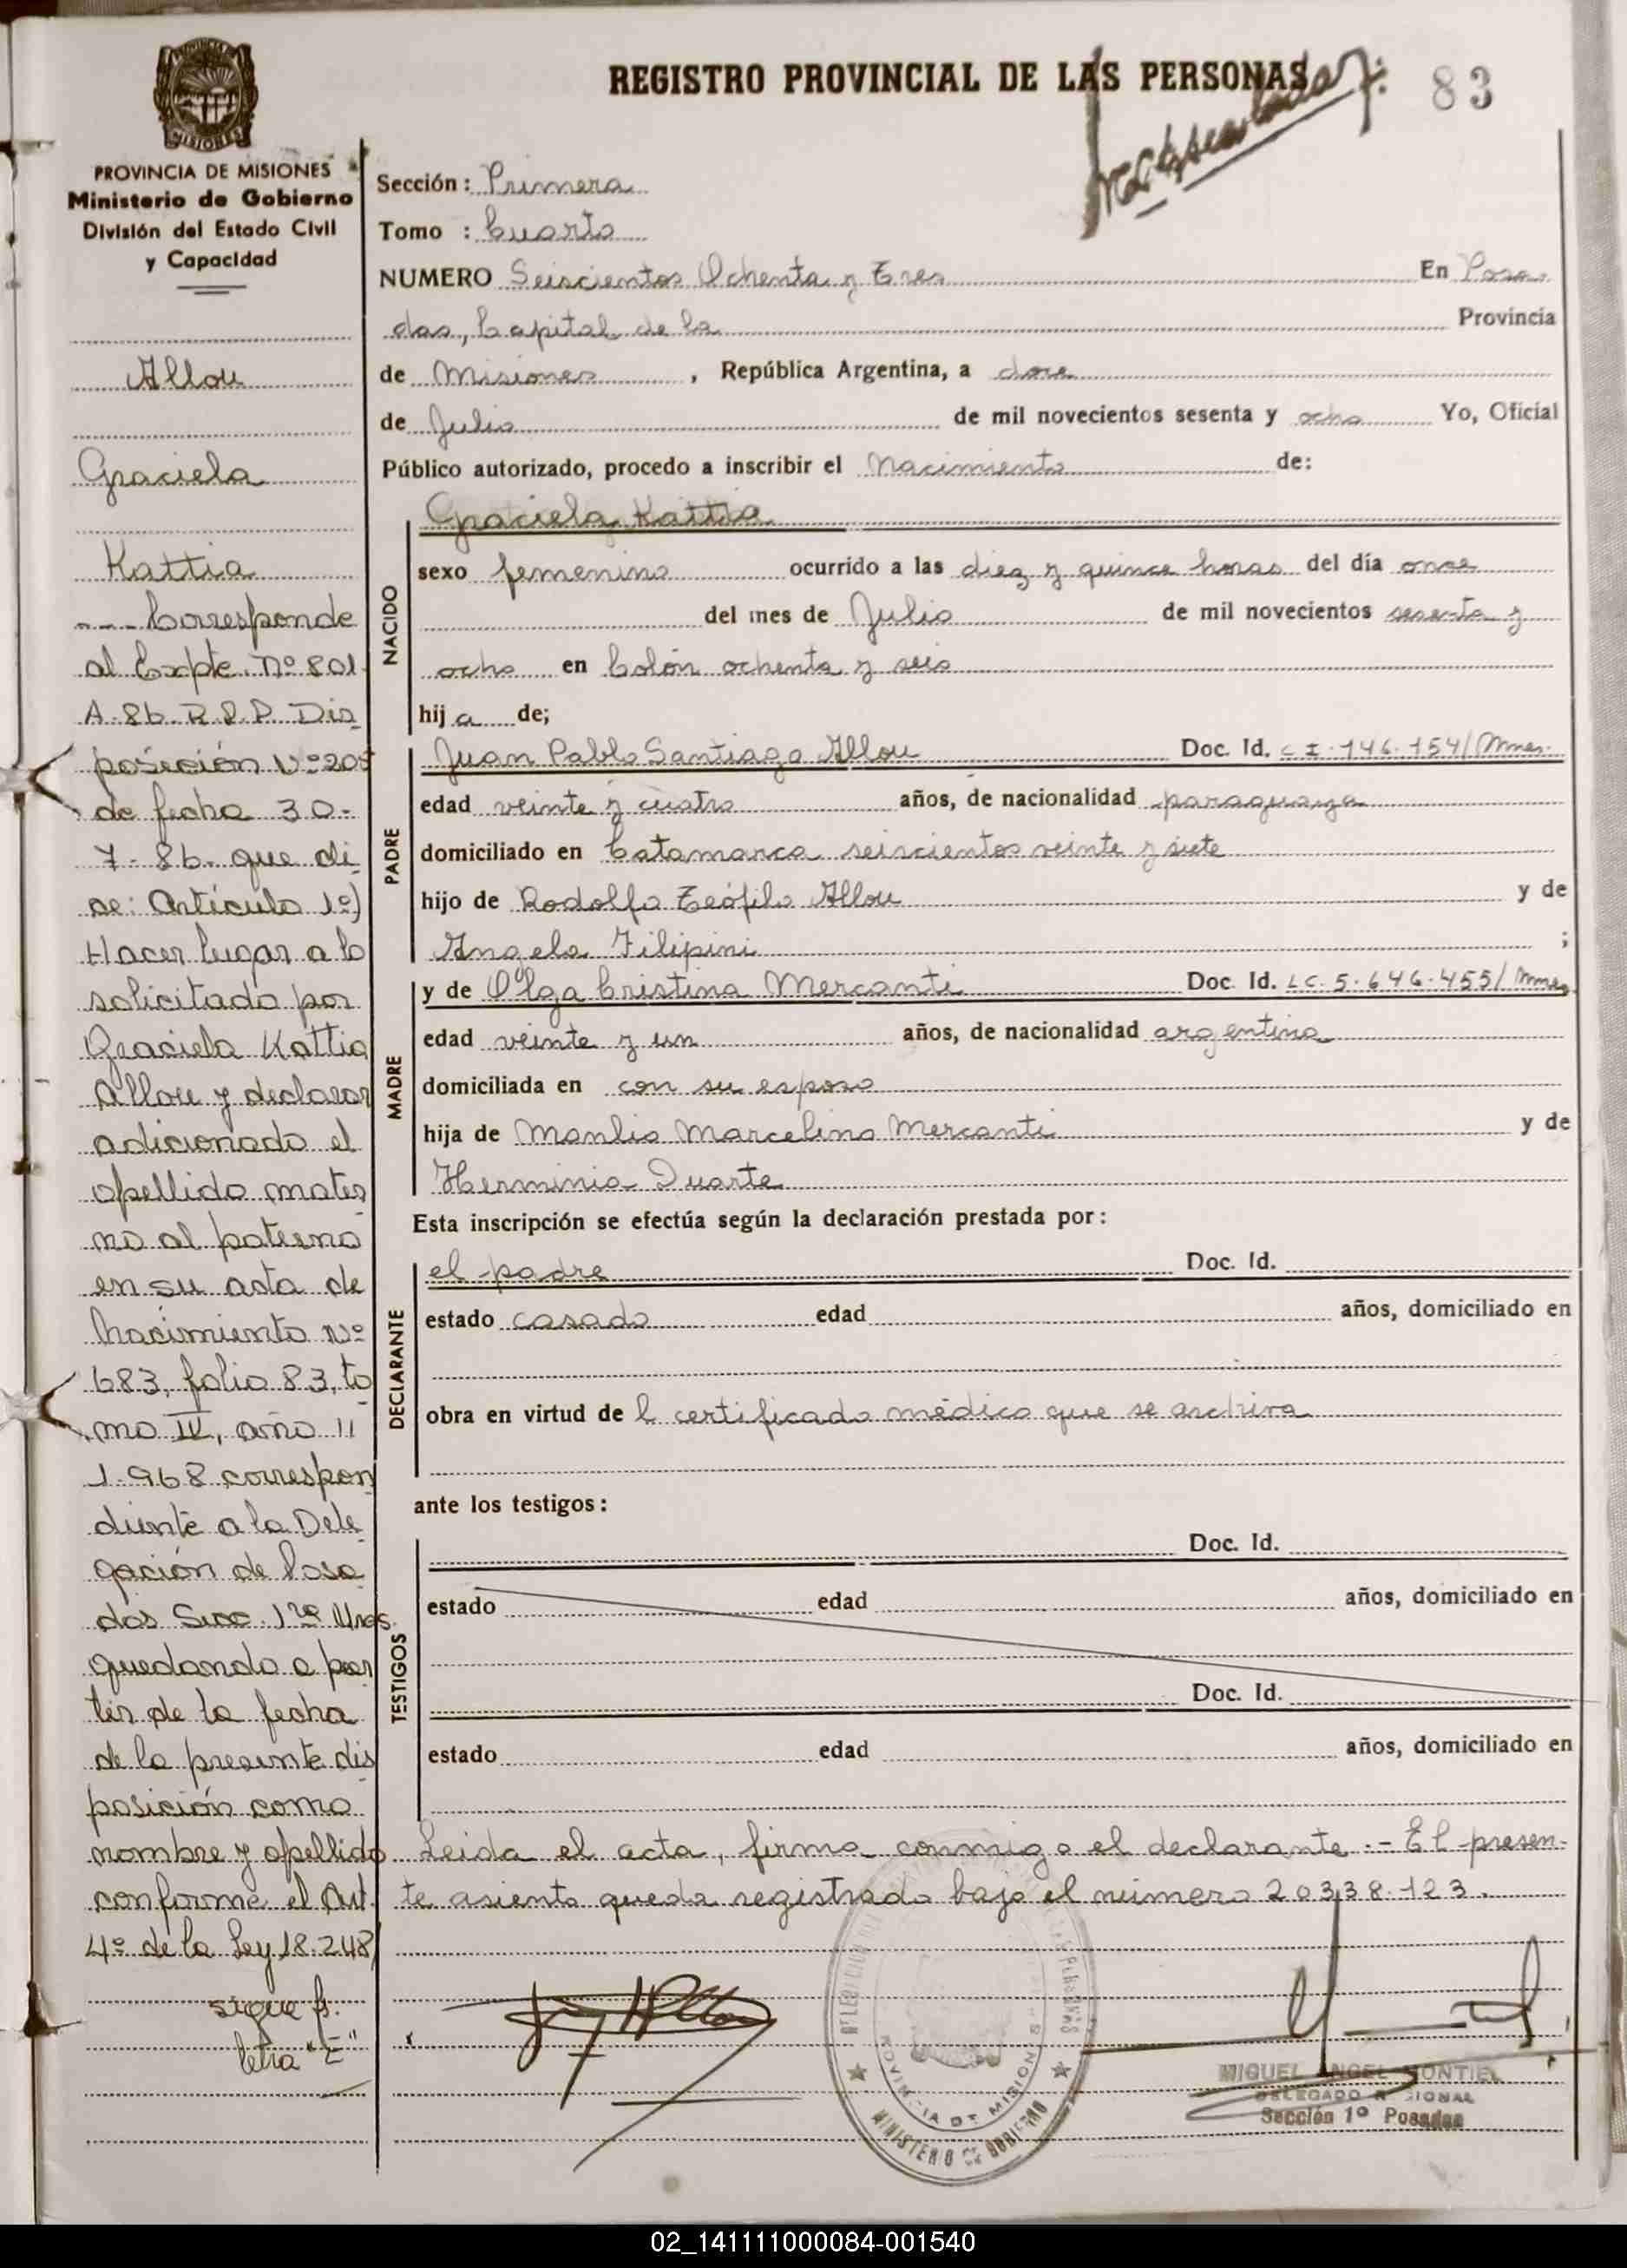 REGISTRO PROVINCIAL DE LAS PERSONAS
83
PROVINCIA DE MISIONES
Ministerio de Gobierno
División del Estado Civil
y Capacidad
Sección: Primera
Tomo : Cuarto
NUMERO Seiscientos Ochenta y Tres En Posa
das, Capital de la Provincia
de Misiones, República Argentina, a doce
de Julio de mil novecientos sesenta y ocho Yo, Oficial
Público autorizado, procedo a inscribir el Nacimiento de:
NACIDO
Graciela Kattia
sexo femenino ocurrido a las diez y quince horas del día once
del mes de Julio de mil novecientos sesenta y
ocho en Colón ochenta y seis
hija de;
PADRE
Juan Pablo Santiago Allou Doc. Id. C I. 146.154/Mnes.
edad veinte y cuatro años, de nacionalidad paraguaya
domiciliado en Catamarca seiscientos veinte y siete
hijo de Rodolfo Teófilo Allou y de
Angela Filipini ;
MADRE
y de Olga Cristina Mercanti Doc. Id. LC. 5.646.455/Mnes
edad veinte y un años, de nacionalidad argentina
domiciliada en con su esposo
hija de Manlio Marcelino Mercanti y de
Herminia Duarte
Esta inscripción se efectúa según la declaración prestada por:
DECLARANTE
el padre Doc. Id.
estado casado edad años, domiciliado en
obra en virtud de l certificado médico que se archiva
ante los testigos:
TESTIGOS
Doc. Id.
estado edad años, domiciliado en
Doc. Id.
estado edad años, domiciliado en
Leida el acta, firma conmigo el declarante.- El presen-
te asiento queda registrado bajo el número 20338.123.
Allou
Graciela
Kattia
--- Corresponde
al Expte. Nº 801-
A-86-R.P.P. Dis
posición Nº 205
de fecha 30-
7-86- que di
ce: Artículo 1º)
Hacer lugar a lo
solicitado por
Graciela Kattia
Allou y declarar
adicionado el
apellido mater
no al paterno
en su acta de
Nacimiento Nº
683, folio 83, to
mo IV, año
1.968 correspon
diente a la Dele
gación de Posa
das Secc. 1ra Mnes.
quedando a par
tir de la fecha
de la presente dis
posición como
nombre y apellido
conforme el Art.
4º de la Ley 18.248
sigue f.
letra "E"
MINISTERIO DE GOBIERNO
PROVINCIA DE MISIONES
MIGUEL ANGEL MONTIEL
DELEGADO REGIONAL
Sección 1º Posadas
02_141111000084-001540